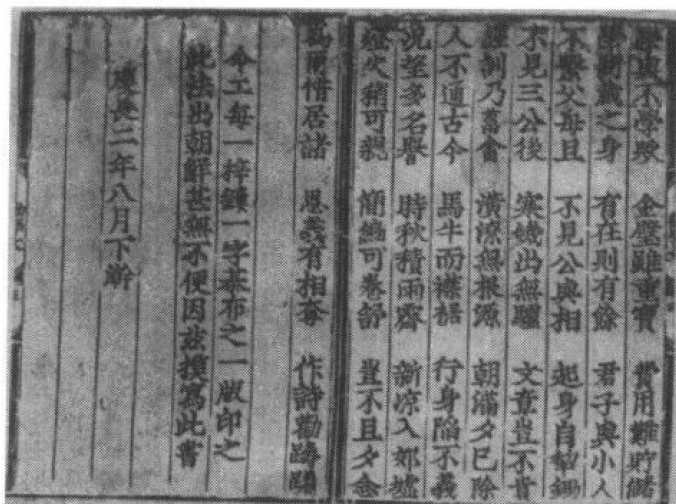 學與不學歟 金璧雖重寶 費用難貯儲
學問藏之身 有在則有餘 君子與小人
不繫父母且 不見公與相 起身自犁鋤
不見三公後 寒饑出無驢 文章豈不貴
經訓乃菑畬 潢潦無根源 朝滿夕已除
人不通古今 馬牛而襟裾 行身陷不義
況望多名譽 時秋積雨霽 新凉入郊墟
燈火稍可親 簡編可卷舒 豈不旦夕念
爲爾惜居諸 恩義有相奪 作詩勸躊躇
命工每一梓鏤一字棊布之一版印之
此法出朝鮮甚無不便因茲摸寫此書
慶長二年八月下澣